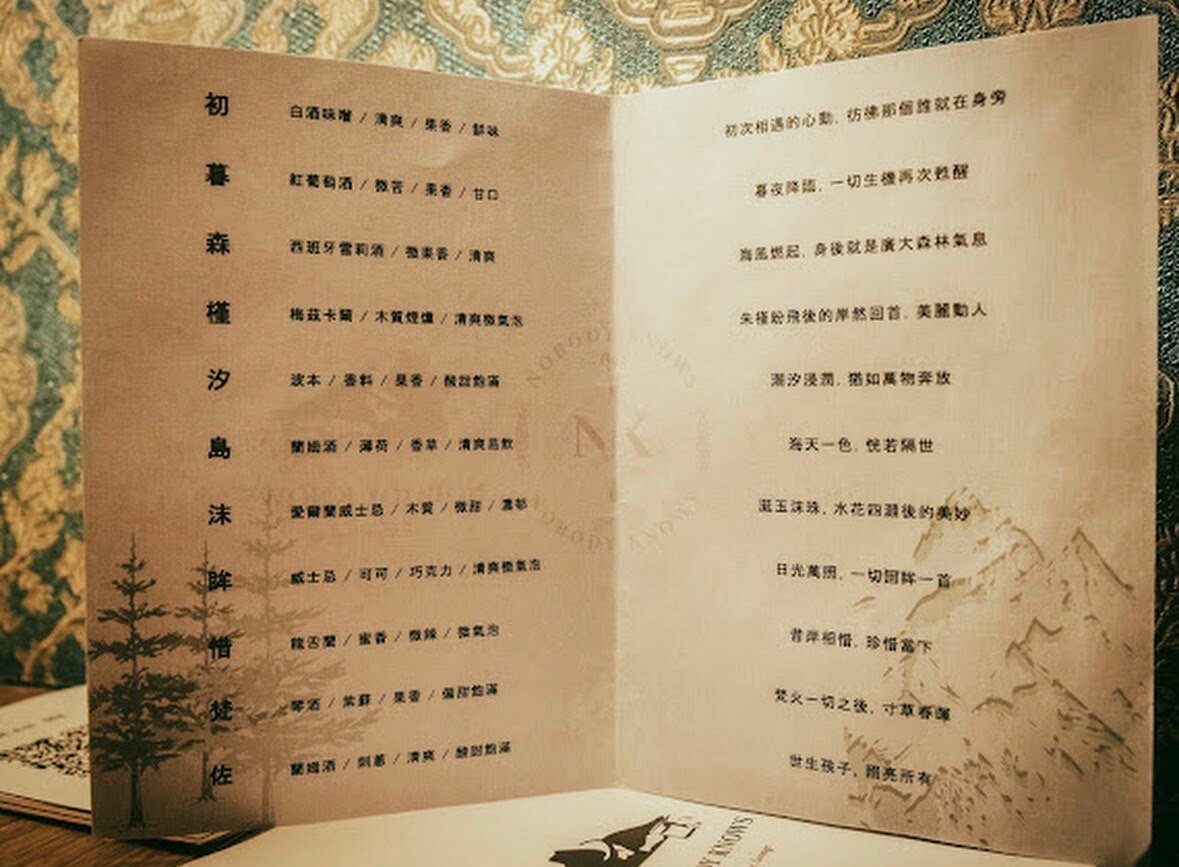 初 白酒味噌 / 清爽 / 果香 / 鹹味
暮 紅葡萄酒 / 微苦 / 果香 / 甘口
森 西班牙雪莉酒 / 微果香 / 清爽
槿 梅茲卡爾 / 木質煙燻 / 清爽微氣泡
汐 波本 / 香料 / 果香 / 酸甜飽滿
島 蘭姆酒 / 薄荷 / 香草 / 清爽易飲
沫 愛爾蘭威士忌 / 木質 / 微甜 / 濃郁
眸 威士忌 / 可可 / 巧克力 / 清爽微氣泡
惜 龍舌蘭 / 蜜香 / 微辣 / 微氣泡
焚 琴酒 / 紫蘇 / 果香 / 偏甜飽滿
佐 蘭姆酒 / 刺蔥 / 清爽 / 酸甜飽滿
初次相遇的心動, 彷彿那個誰就在身旁
暮夜降臨, 一切生機再次甦醒
海風燃起, 身後就是廣大森林氣息
朱槿紛飛後的岸然回首, 美麗動人
潮汐浸潤, 猶如萬物奔放
海天一色, 恍若隔世
涎玉沫珠, 水花四濺後的美妙
日光萬照, 一切回眸一首
昔岸相惜, 珍惜當下
焚火一切之後, 寸草春暉
世生孩子, 照亮所有
NOBODY KNOWS
NK
NOBODY KNOWS
KNOWS